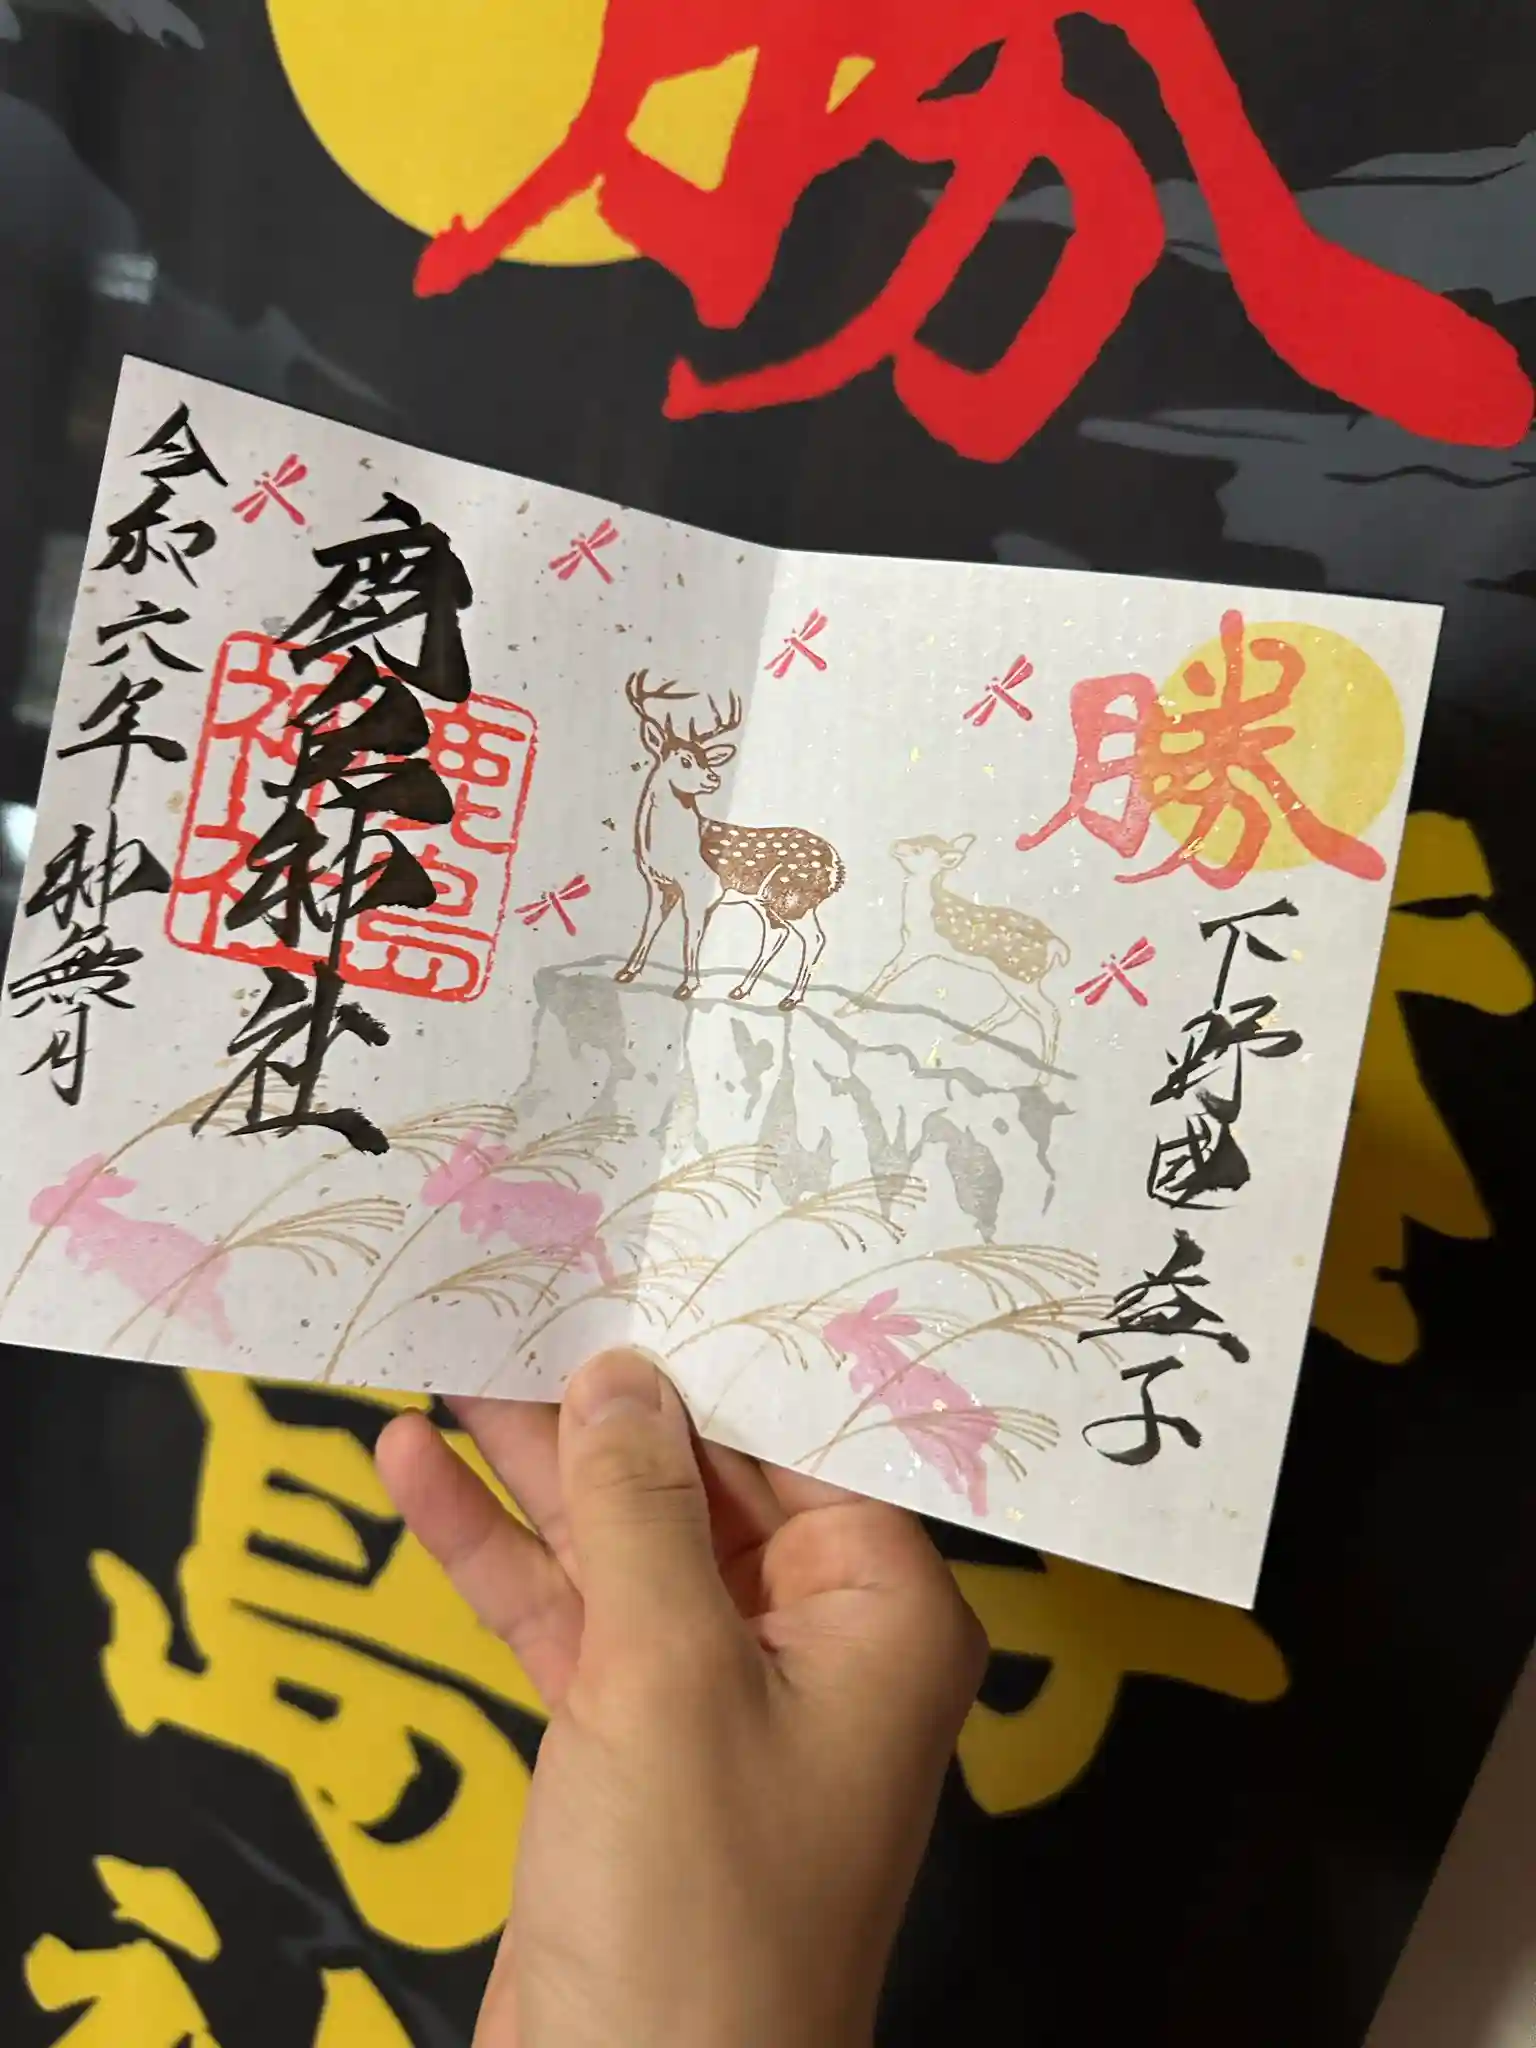 勝
勝
下野國益子
鹿島神社
鹿島神社
令和六年神無月